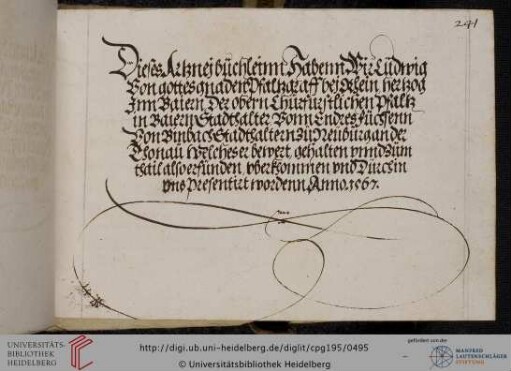 241
Dieses Artzneÿ büchleinn Habenn Wir Ludwig
Von gottes gnaden Pfaltzgraff beÿ Rhein hertzog
Inn Baiern Der obern Churfürstlichen Pfaltz
in Baiern Stadthalter Vonn Endres Fuchsenn
Von Binbach Stadthaltern zu Neüburg an der
Thonau Welches er bewert gehalten vnnd zum
thail also erfunden vberkhommen vnd
vns Presentirt wordenn Anno. 1567.
UNIVERSITÄTS-
BIBLIOTHEK
HEIDELBERG
http://digi.ub.uni-heidelberg.de/diglit/cpg195/0495
© Universitätsbibliothek Heidelberg
gefördert von der
MANFRED
LAUTENSCHLÄGER
STIFTUNG